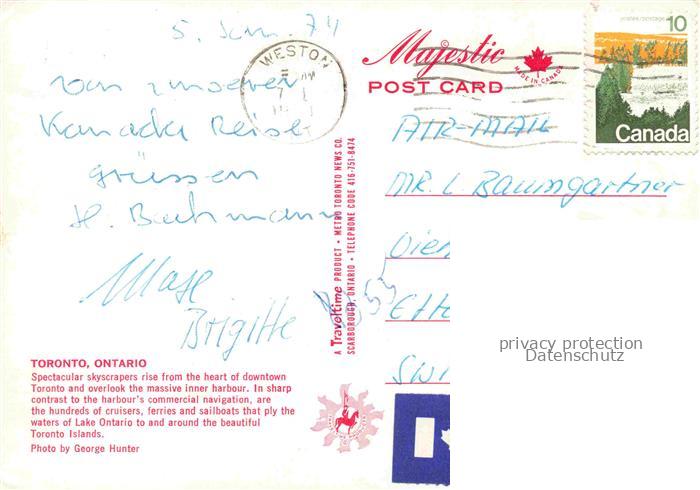 5. Jan. 74
von unserer
Kanada Reise
grüssen
H. Bachmann
Brigitte
TORONTO, ONTARIO
Spectacular skyscrapers rise from the heart of downtown
Toronto and overlook the massive inner harbour. In sharp
contrast to the harbour's commercial navigation, are
the hundreds of cruisers, ferries and sailboats that ply the
waters of Lake Ontario to and around the beautiful
Toronto Islands.
Photo by George Hunter
WESTON
A Traveltime PRODUCT • METRO TORONTO NEWS CO.
SCARBOROUGH, ONTARIO • TELEPHONE CODE 416-751-8474
Majestic
MADE IN CANADA
POST CARD
postes/postage 10
Canada
AIR-MAIL
MR. L. Baumgartner
privacy protection
Datenschutz